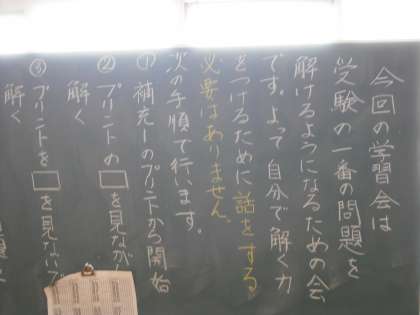 今回の学習会は
受験の一番の問題を
解けるようになるための会
です。よって自分で解く力
をつけるために話をする
必要はありません。
次の手順で行います。
①補充一のプリントから開始
②プリントの□を見ながら
解く
③プリントを□を見ないで
解く